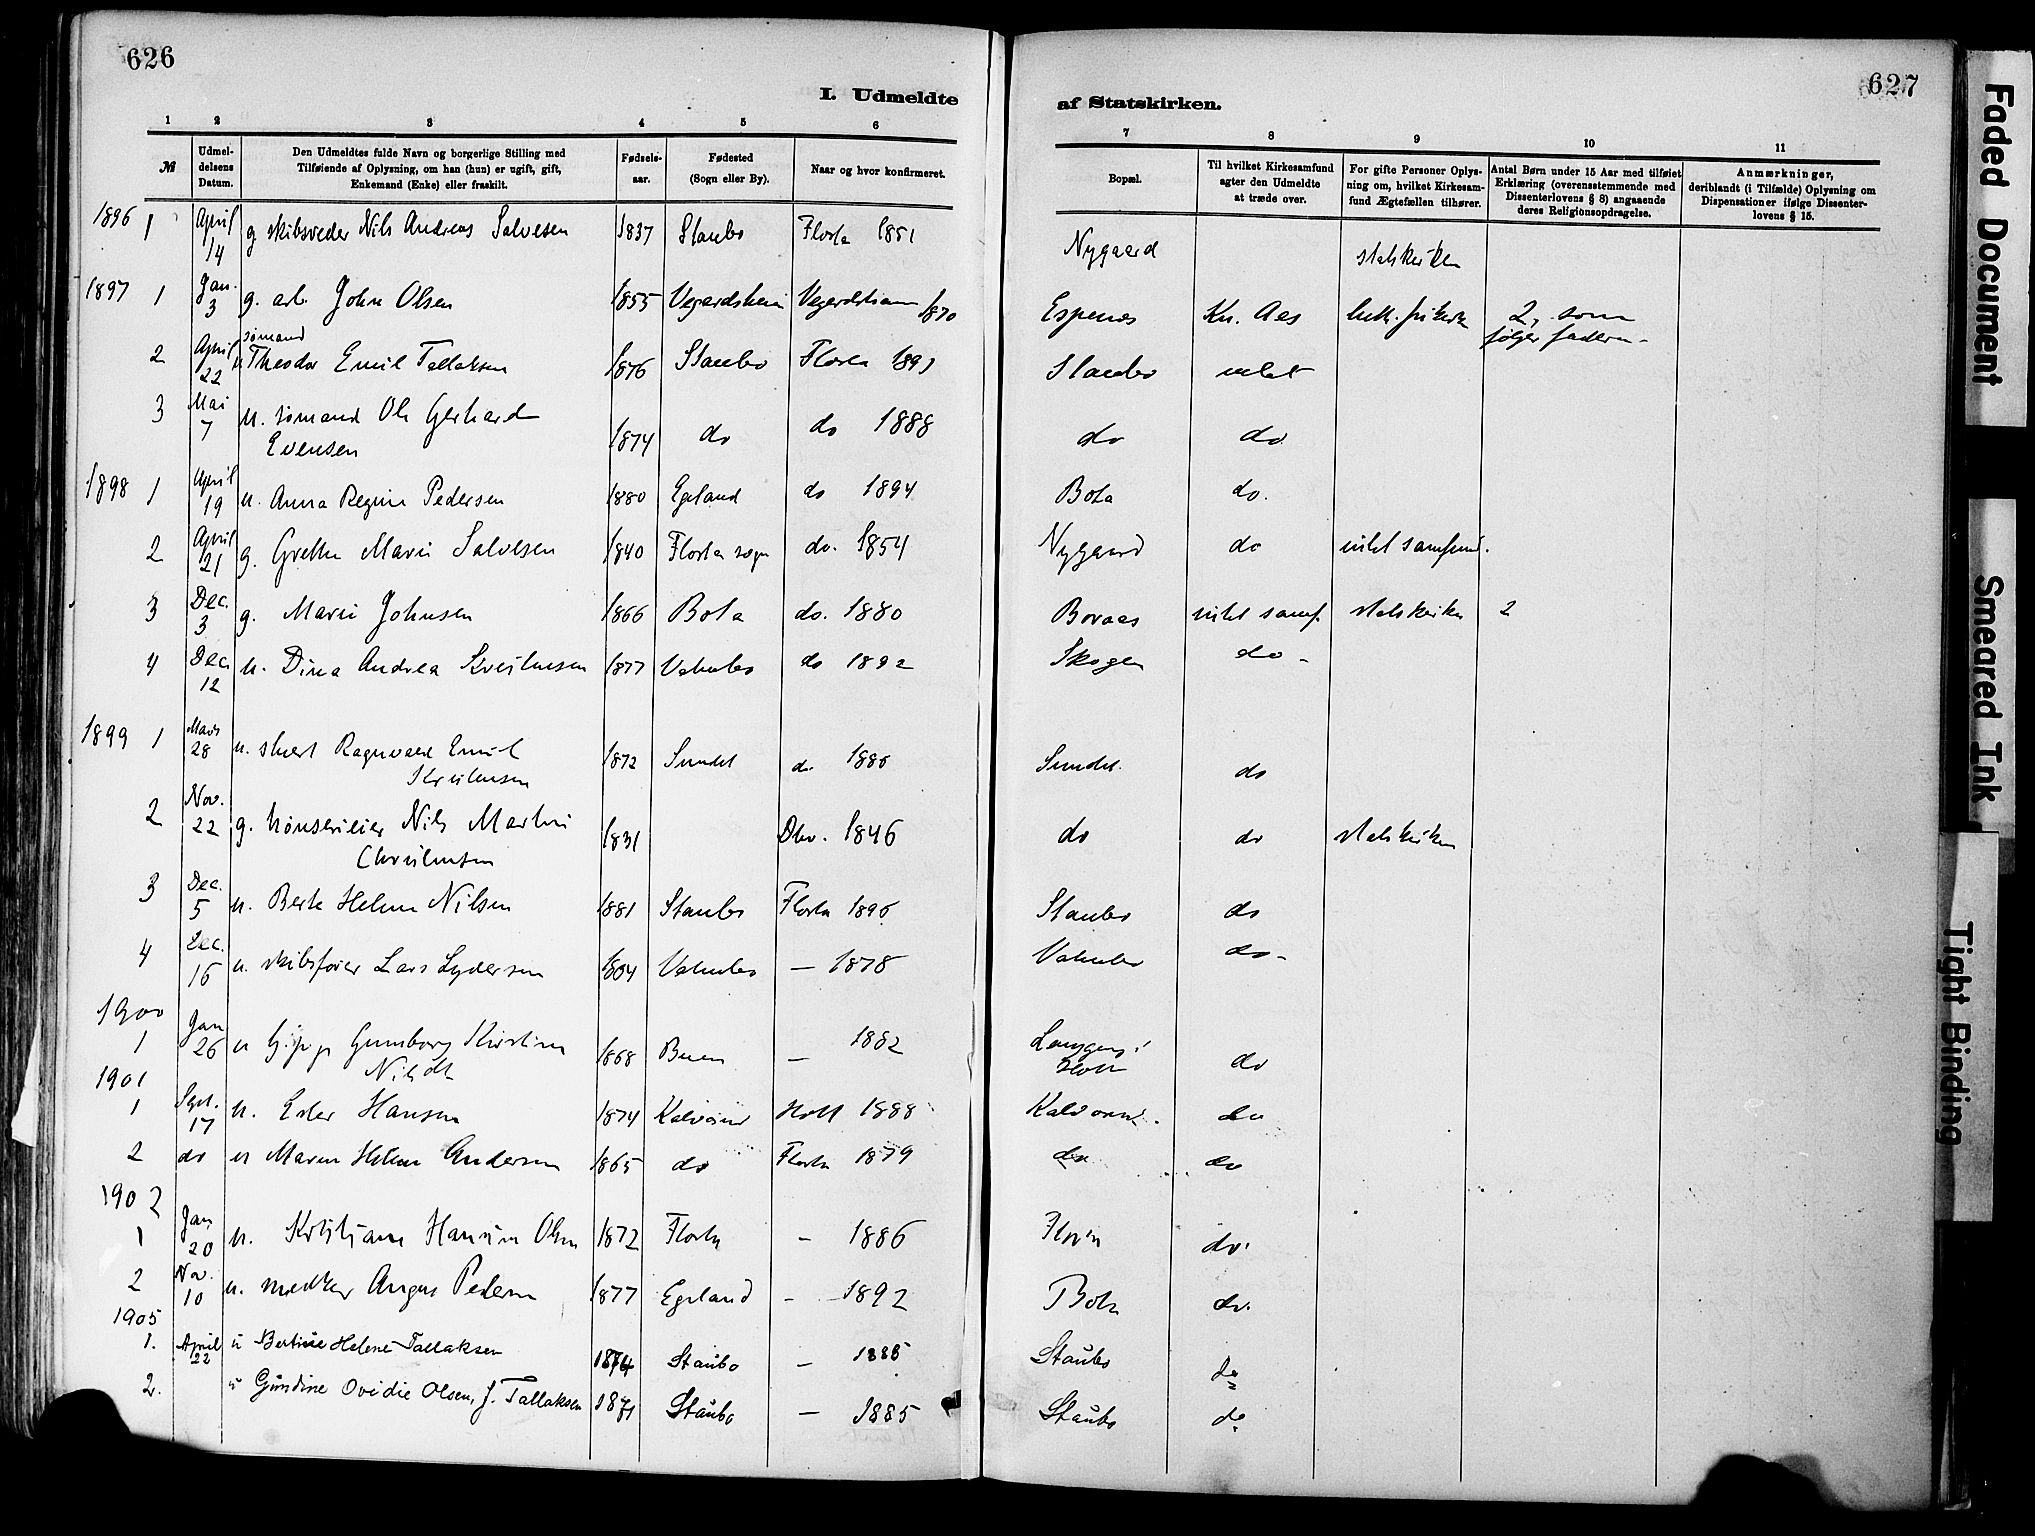 626
I. Udmeldte
1 2 3 4 5 6
№
Udmel-
delsens
Datum.
Den Udmeldtes fulde Navn og borgerlige Stilling med
Tilføiende af Oplysning, om han (hun) er ugift, gift,
Enkemand (Enke) eller fraskilt.
Fødsels-
aar.
Fødested
(Sogn eller By).
Naar og hvor konfirmeret.
1896 1 April 14 g skibsreder Nils Andreas Salvesen 1837 Staubo Flosta 1851
1897 1 Jan. 3 g. arb. John Olsen 1855 Vegardsheien 1870
sømand
2 April 22 u Theodor Emil Tallaksen 1876 Staubo Flosta 1891
3 Mai 7 u. sømand Ole Gerhard
Evensen 1874 do do 1888
1898 1 April 19 u. Anna Regine Pedersen 1880 Egeland do 1894
2 April 21 g. Grethe Marie Salvesen 1840 Flosta sogn do. 1854
3 Dec. 3 g. Marie Johnsen 1866 Bota do. 1880
4 Dec. 12 u. Dina Andrea 1877 do 1892
1899 1 Marts 28 u. Ragnvald Emil
1872 Sundet do 1886
2 Nov. 22 g. Nils Martin
Christensen 1831 Dbv. 1846
3 Dec. 5 u. Berte Helene Nilsen 1881 Staubo Flosta 1896
4 Dec. 16 u. skibsfører Lars Lydersen — 1878
1900
1 Jan 26 u Gunborg Kirstine
1868 Buen — 1882
1901
1 Sept. 17 u. Ester Hansen 1874 Holt 1888
2 do u Maren Helene Andersen 1865 do Flosta 1879
1902
1 Jan 20 u. Kristiane Olsen 1872 Flosta – 1886
2 Nov. 10 u. Pedersen 1877 Egeland – 1892
1905
1. April 22 u Bertine Helene Tallaksen 1874 Staubo — 1888
2. u Gundine Ovidie Olsen, f. Tallaksen 1871 Staubo — 1885
627
af Statskirken.
7 8 9 10 11
Bopæl.
Til hvilket Kirkesamfund
agter den Udmeldte
at træde over.
For gifte Personer Oplys-
ning om, hvilket Kirkesam-
fund Ægtefællen tilhører.
Antal Børn under 15 Aar med tilføiet
Erklæring (overensstemmende med
Dissenterlovens § 8) angaaende
deres Religionsopdragelse.
Anmærkninger,
deriblandt (i Tilfælde) Oplysning om
Dispensationer ifølge Dissenter-
lovens § 15.
Nygaard statskirken
Espenes luth. frikirke 2, som
følger faderen.
Staubo intet
do do
Bota do.
Nygaard do intet samfund.
Boraas intet samf. statskirken 2
Skogen do
Sundet. do
do do statskirken
Staubo do
do
do
do
do do
do
Bota do.
Staubo do
Staubo do
Faded Document
Smeared Ink
Tight Binding